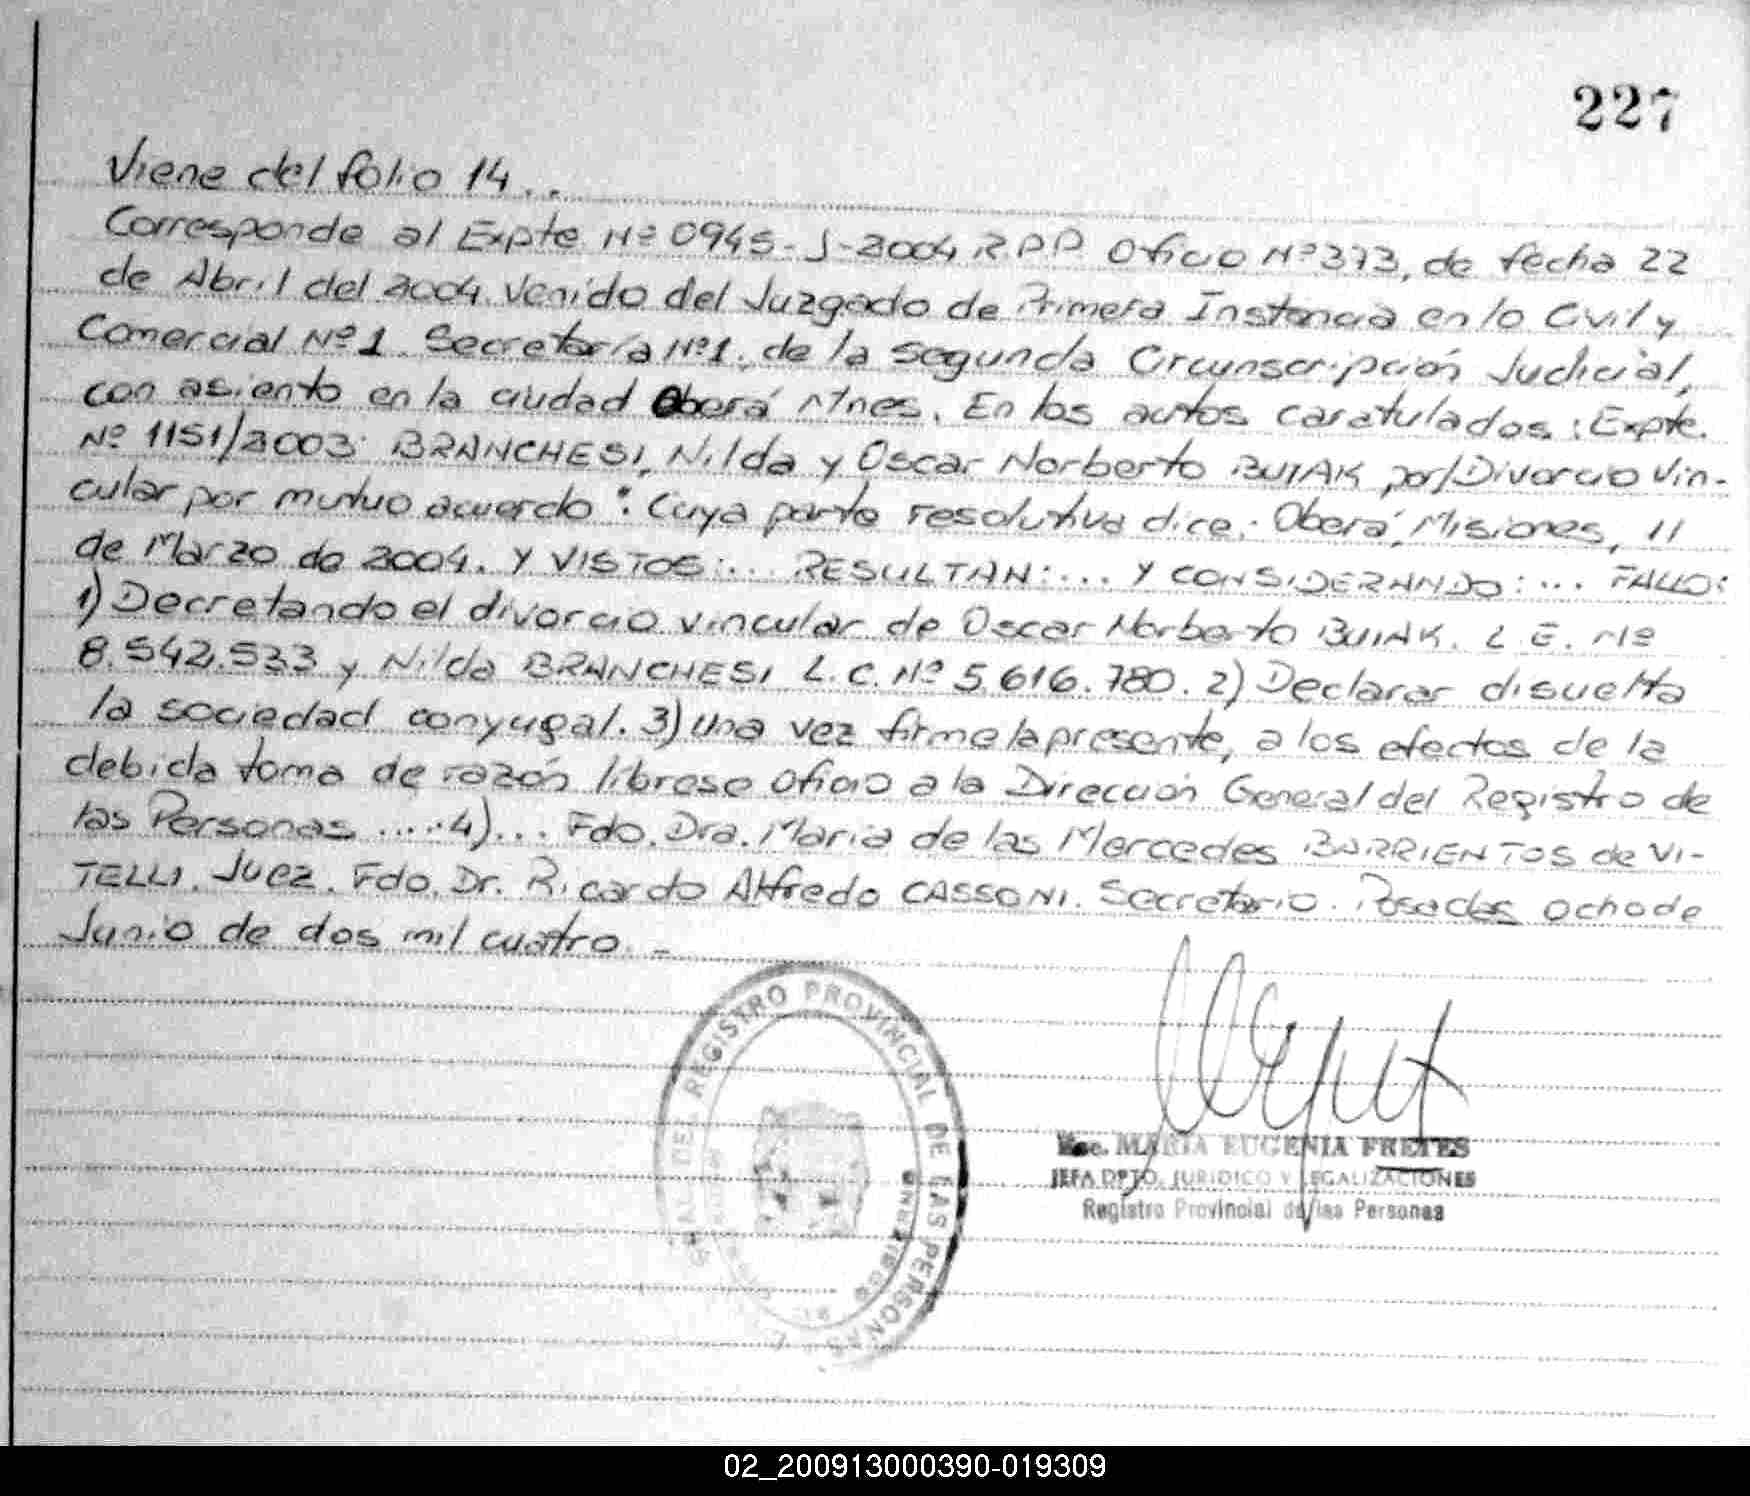 227
Viene del folio 14...
Corresponde al Expte Nº 0945-J-2004 R.P.P. Oficio Nº 373, de fecha 22
de Abril del 2004. Venido del Juzgado de Primera Instancia en lo Civil y
Comercial Nº 1. Secretaría Nº 1, de la Segunda Circunscripción Judicial,
con asiento en la ciudad Oberá Mnes. En los autos caratulados: Expte.
Nº 1151/2003: BRANCHESI, Nilda y Oscar Norberto BUIAK por/Divorcio Vin-
cular por mutuo acuerdo": Cuya parte resolutiva dice: Oberá, Misiones, 11
de Marzo de 2004. Y VISTOS:... RESULTAN:... Y CONSIDERANDO:... FALLO:
1) Decretando el divorcio vincular de Oscar Norberto BUIAK. L.E. Nº
8.542.533 y Nilda BRANCHESI L.C. Nº 5.616.780. 2) Declarar disuelta
la sociedad conyugal. 3) Una vez firme la presente, a los efectos de la
debida toma de razón librese oficio a la Dirección General del Registro de
las Personas ....4)... Fdo. Dra. María de las Mercedes BARRIENTOS de VI-
TELLI. Juez. Fdo. Dr. Ricardo Alfredo CASSONI. Secretario. Posadas ocho de
Junio de dos mil cuatro. -
DEL REGISTRO PROVINCIAL DE LAS PERSONAS
MARIA EUGENIA FRETES
JEFA DPTO. JURIDICO Y LEGALIZACIONES
Registro Provincial de las Personas
02_200913000390-019309